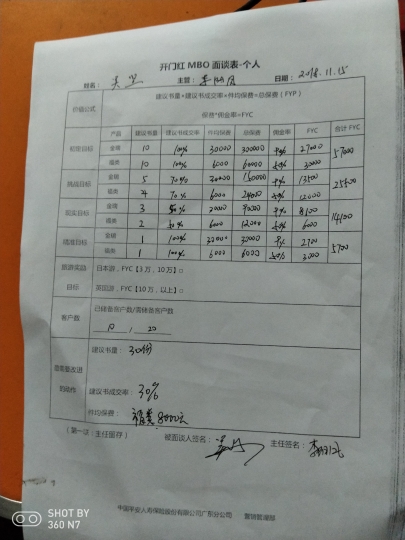 开门红 MBO 面谈表-个人
姓名： 主管： 日期：2018.11.15
价值公式 建议书量*建议书成交率*件均保费=总保费（FYP）
保费*佣金率=FYC
产品 建议书量 建议书成交率 件均保费 总保费 佣金率 FYC 合计 FYC
金瑞 10 100% 30000 300000 9% 27000 57000
福类 10 100% 6000 60000 50% 30000
挑战目标 金瑞 5 70% 150000 9% 13500 25500
福类 4 70% 6000 24000 50% 12000
金瑞 3 50% 30000 90000 9% 8100 14100
福类 2 50% 6000 12000 50% 6000
金瑞 1 100% 30000 30000 9% 2700 5700
福类 1 100% 6000 6000 50% 3000
旅游奖励 日本游，FYC【3万，10万】□
目标 英国游，FYC【10万，以上】□
客户数 已储备客户数/需储备客户数
10 / 20
建议书量：30份
您需要改进
的动作 建议书成交率：30%
件均保费：福类8000元
（第一联：主任留存） 被面谈人签名： 主任签名：
中国平安人寿保险股份有限公司广东分公司 营销管理部
SHOT BY
360 N7